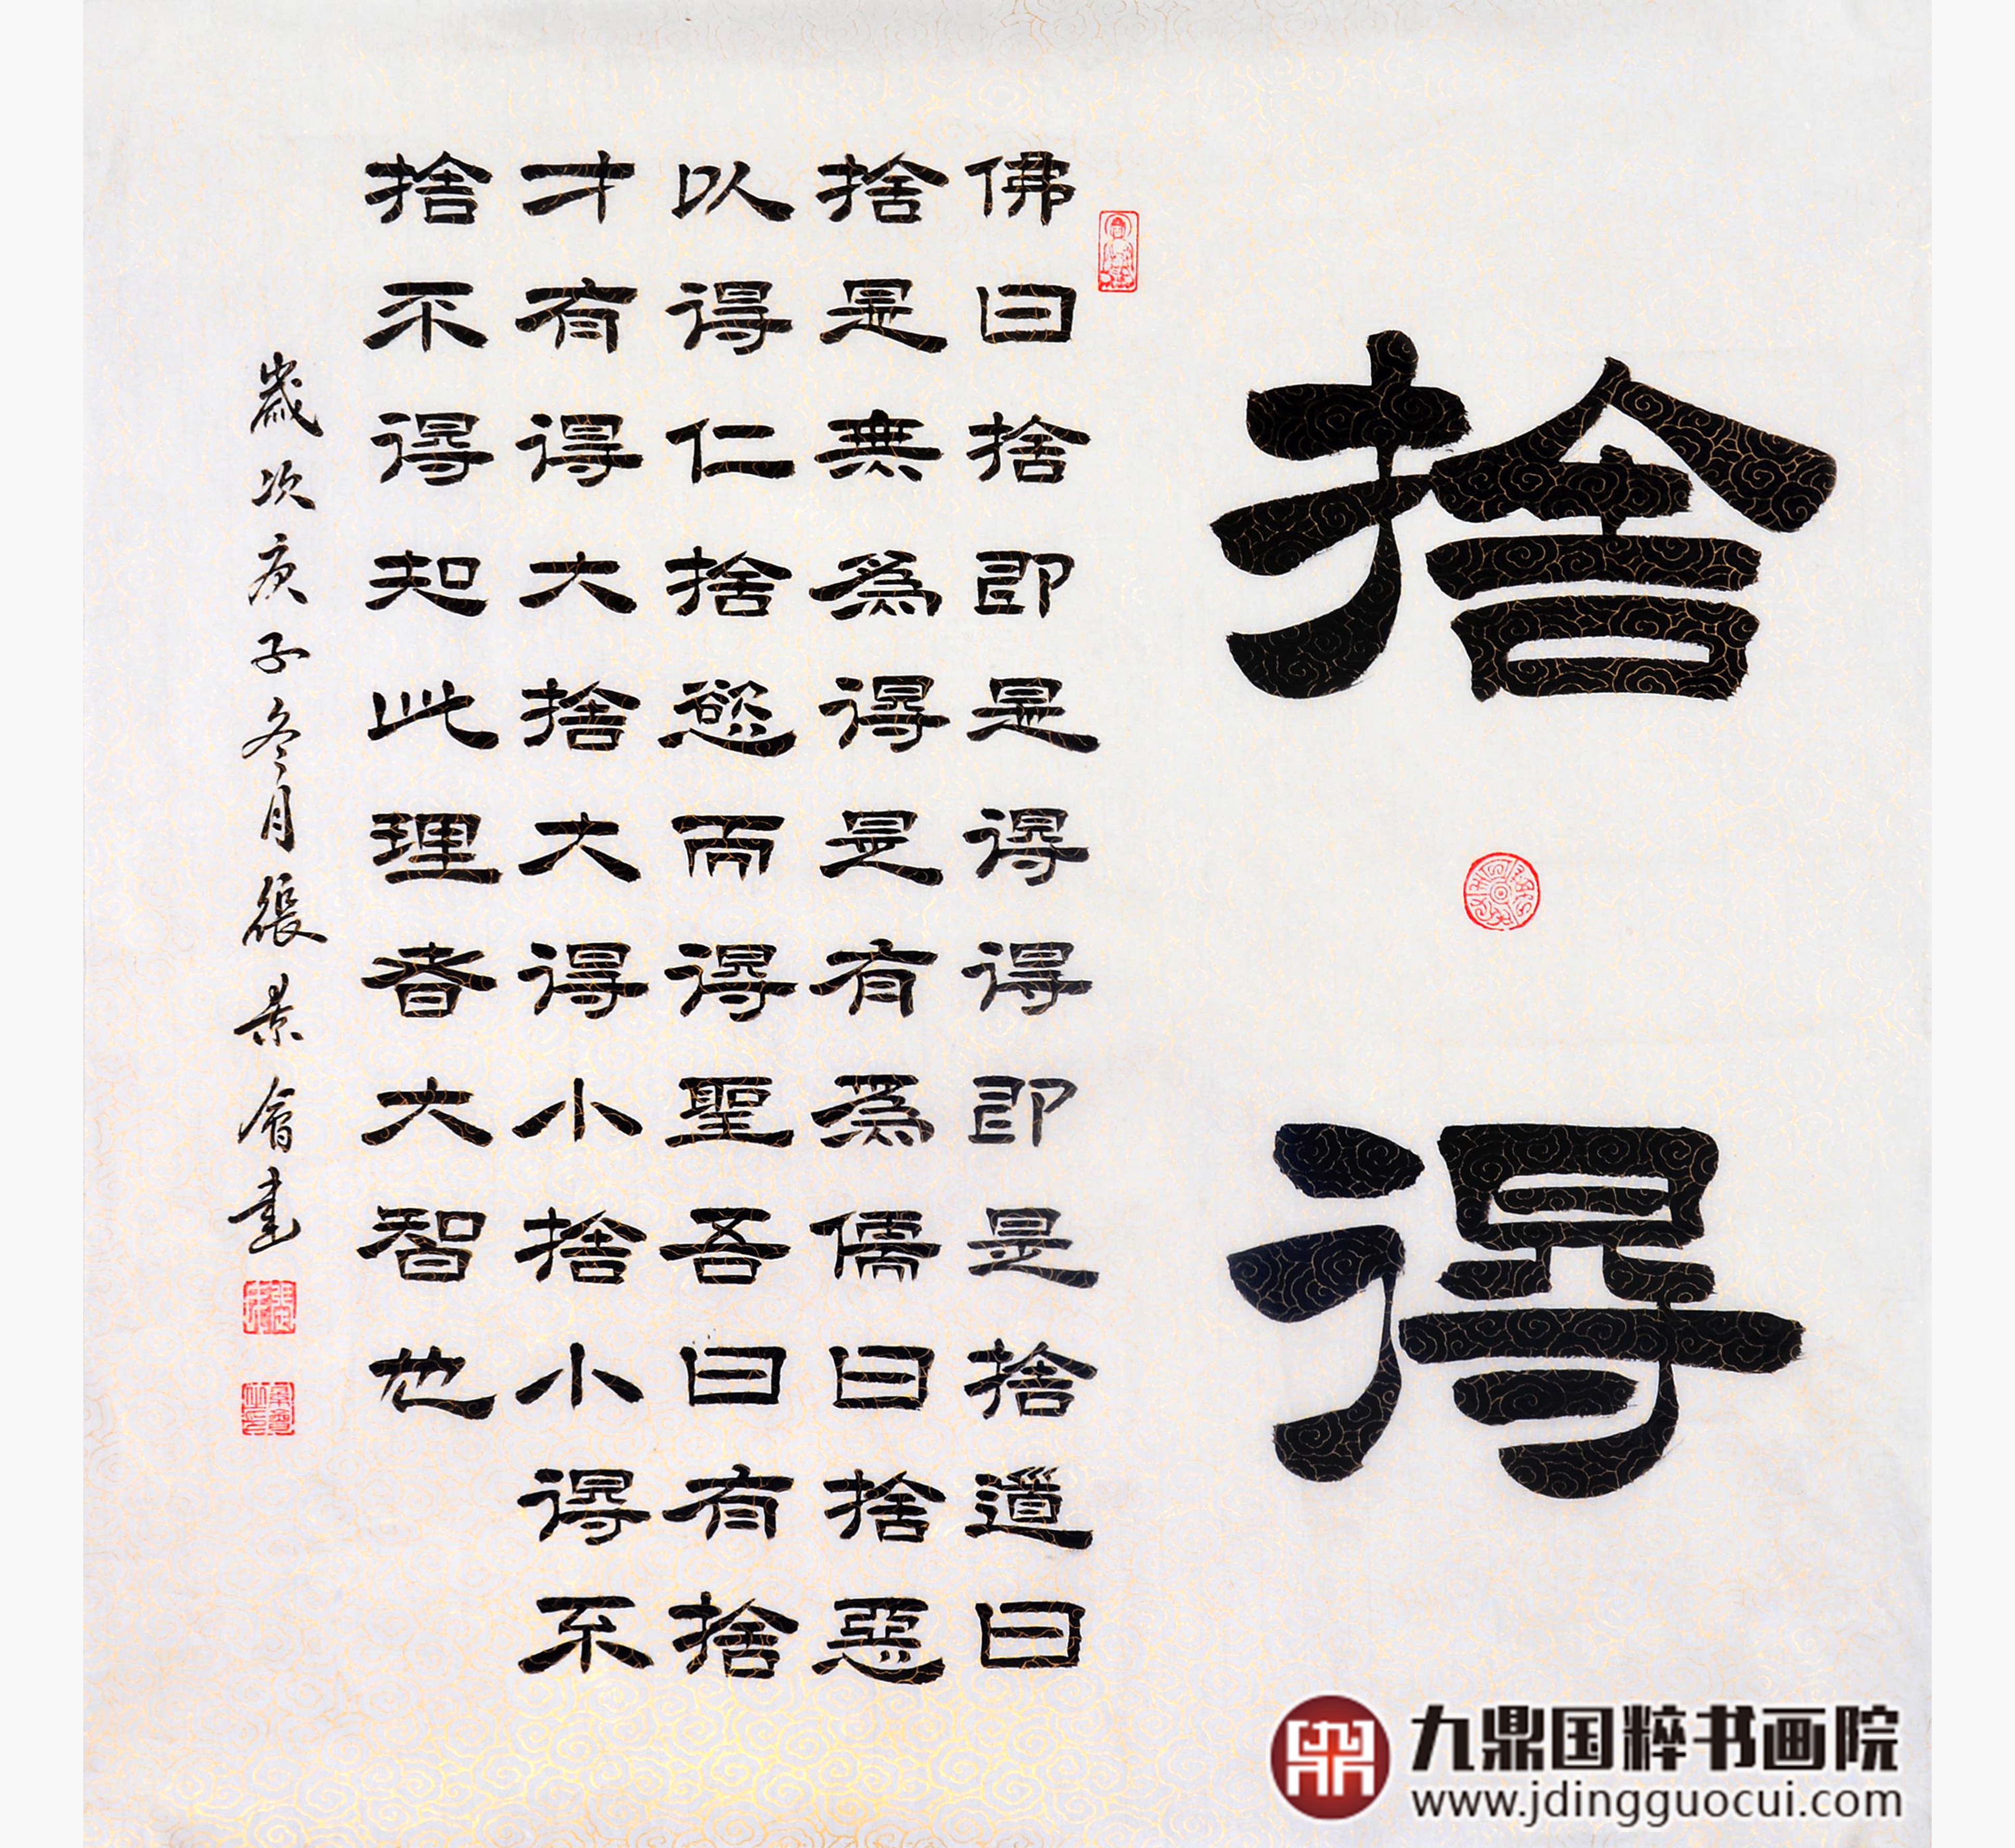 捨得
佛曰捨即是得得即是捨道曰
捨是無爲得是有爲儒曰捨惡
以得仁捨慾而得聖吾曰有捨
才有得大捨大得小捨小得不
捨不得知此理者大智也
歲次庚子冬月張景會書
九鼎国粹书画院
www.jdingguocui.com